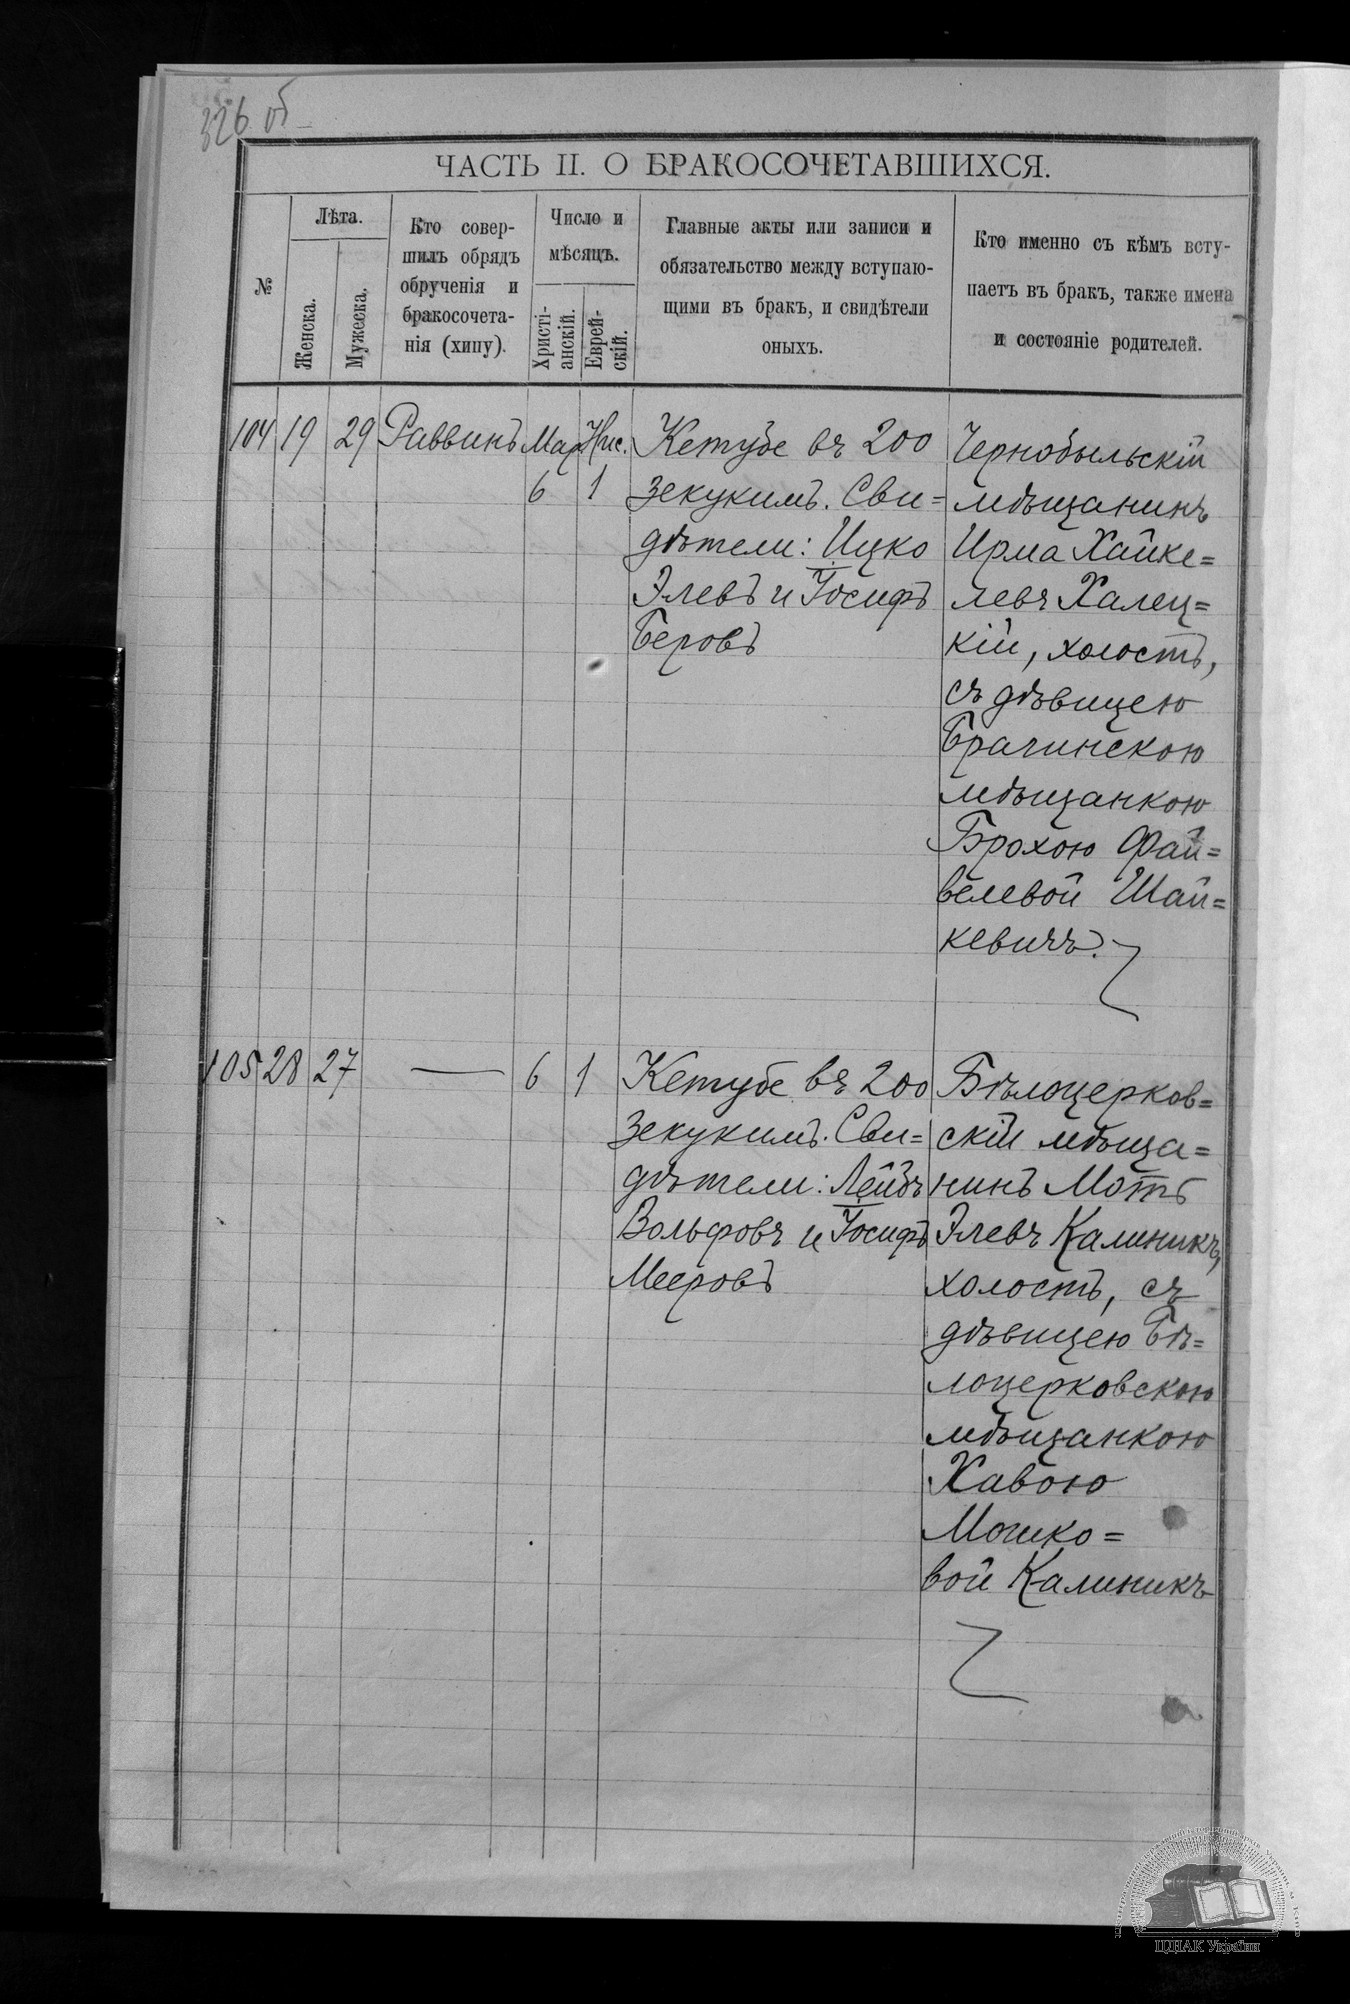 326 об
ЧАСТЬ II. О БРАКОСОЧЕТАВШИХСЯ.
№
Лѣта.
Женска.
Мужеска.
Кто совер-
шилъ обрядъ
обрученія и
бракосочета-
нія (хипу).
Число и
мѣсяцъ.
Христі-
анскій.
Еврей-
скій.
Главные акты или записи и
обязательство между вступаю-
щими въ бракъ, и свидѣтели
оныхъ.
Кто именно съ кѣмъ всту-
паетъ въ бракъ, также имена
и состояніе родителей.
104 19 29 Раввинъ Мар. Нис.
6 1
Кетубе въ 200
зекукимъ. Сви=
дѣтели: Ицко
Элевъ и Іосифъ
Беровъ
Чернобыльскій
мѣщанинъ
Ирма Хайке=
левъ Халец=
кій, холостъ,
съ дѣвицею
Брагинскою
мѣщанкою
Брохою Фай=
велевой Шай=
кевичъ.
105 28 27 — 6 1
Кетубе въ 200
зекукимъ. Сви=
дѣтели: Лейбъ
Вольфовъ и Іосифъ
Мееровъ
Бѣлоцерков=
скій мѣща=
нинъ Мотъ
Элевъ Калиникъ,
холостъ, съ
дѣвицею Бѣ=
лоцерковскою
мѣщанкою
Хавою
Мошко=
вой Калиникъ
ЦДІАК України